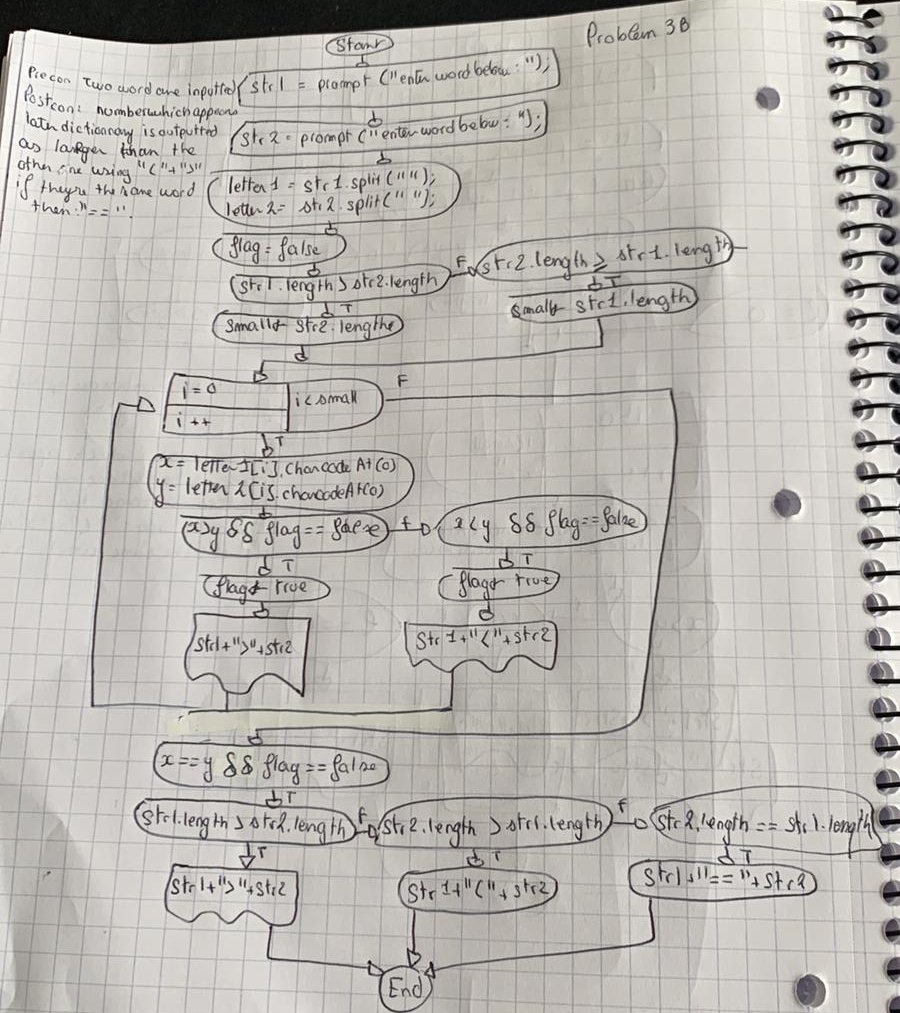 Start
Problem 3B
Precon Two word are inputted
Postcon: number which appears
late dictionnary is outputted
as larger than the
other one using "<"+">"
if they're the same word
then: "==".
str1 = prompt ("enter word below: ");
str2 = prompt ("enter word below: ");
letter1 = str1.split("");
letter2= str2.split(" ");
flag = false
str1.length > str2.length
F
str2.length ≥ str1.length
T
T
small← str2.length
small← str1.length
i = 0
i++
i < small
F
T
x = letter1[i].charcodeAt(0)
y = letter2[i].charcodeAt(0)
x>y && flag == false
f
x<y && flag==false
T
T
flag← true
flag← true
str1+">"+str2
Str1+"<"+str2
x==y && flag==false
T
str1.length > str2.length
F
str2.length > str1.length
F
str2.length == str1.length
T
T
T
str1+">"+str2
Str1+"<"+str2
Str1+"=="+str2
End